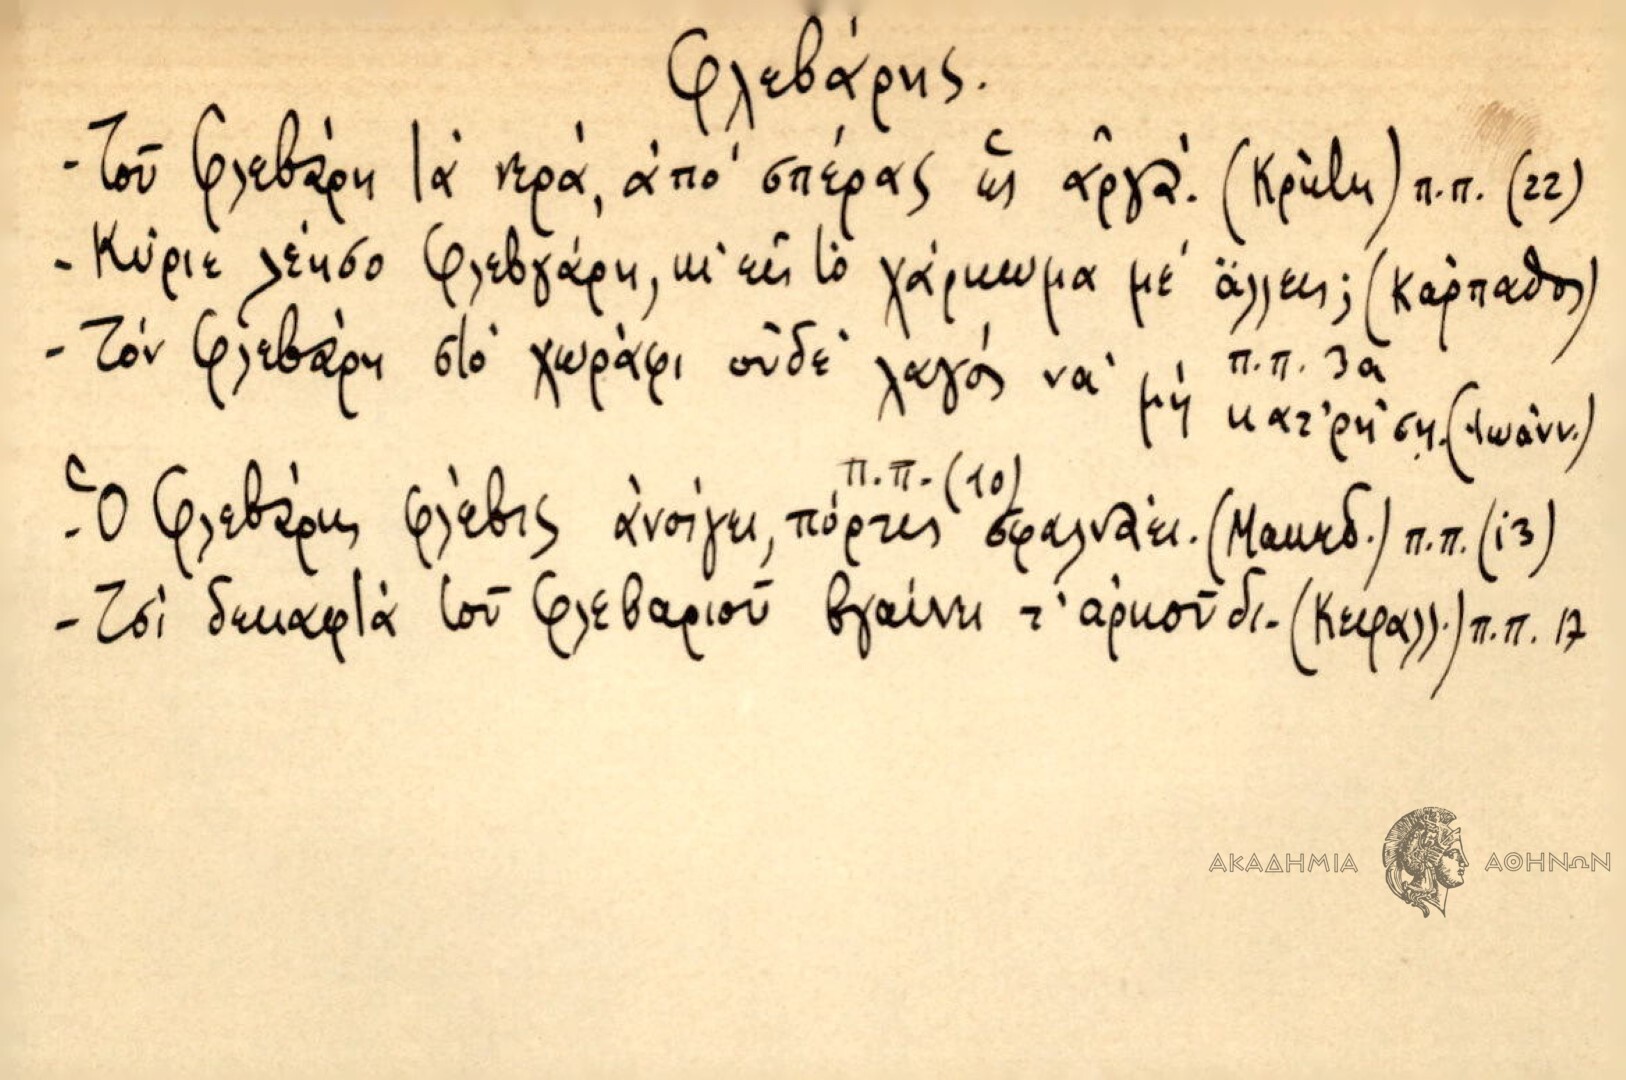 Φλεβάρης.
- Τοῦ Φλεβάρη τὰ νερά, ἀπὸ σπέρας ὣς ἀργά. (Κρήτη) π.π. (22)
- Κύριε λέησο Φλεβγάρη, κι' εἶς τὸ χάρκωμα μὲ ἄλλεις; (Κάρπαθος)
- Τὸν Φλεβάρη στὸ χωράφι οὐδὲ λαγὸς νὰ μὴ
π.π. 3α
κατ'ρήσῃ. (Ἰωάνν.)
π.π. (10)
- Ὁ Φλεβάρης φλέβες ἀνοίγει, πόρτες σφαλνάει. (Μακεδ.) π.π. (13)
- Τσὶ δεκαφτὰ τοῦ Φλεβαριοῦ βγαίνει τ' ἀρκοῦδι. (Κεφαλλ.) π.π. 17
ΑΚΑΔΗΜΙΑ ΑΘΗΝΩΝ